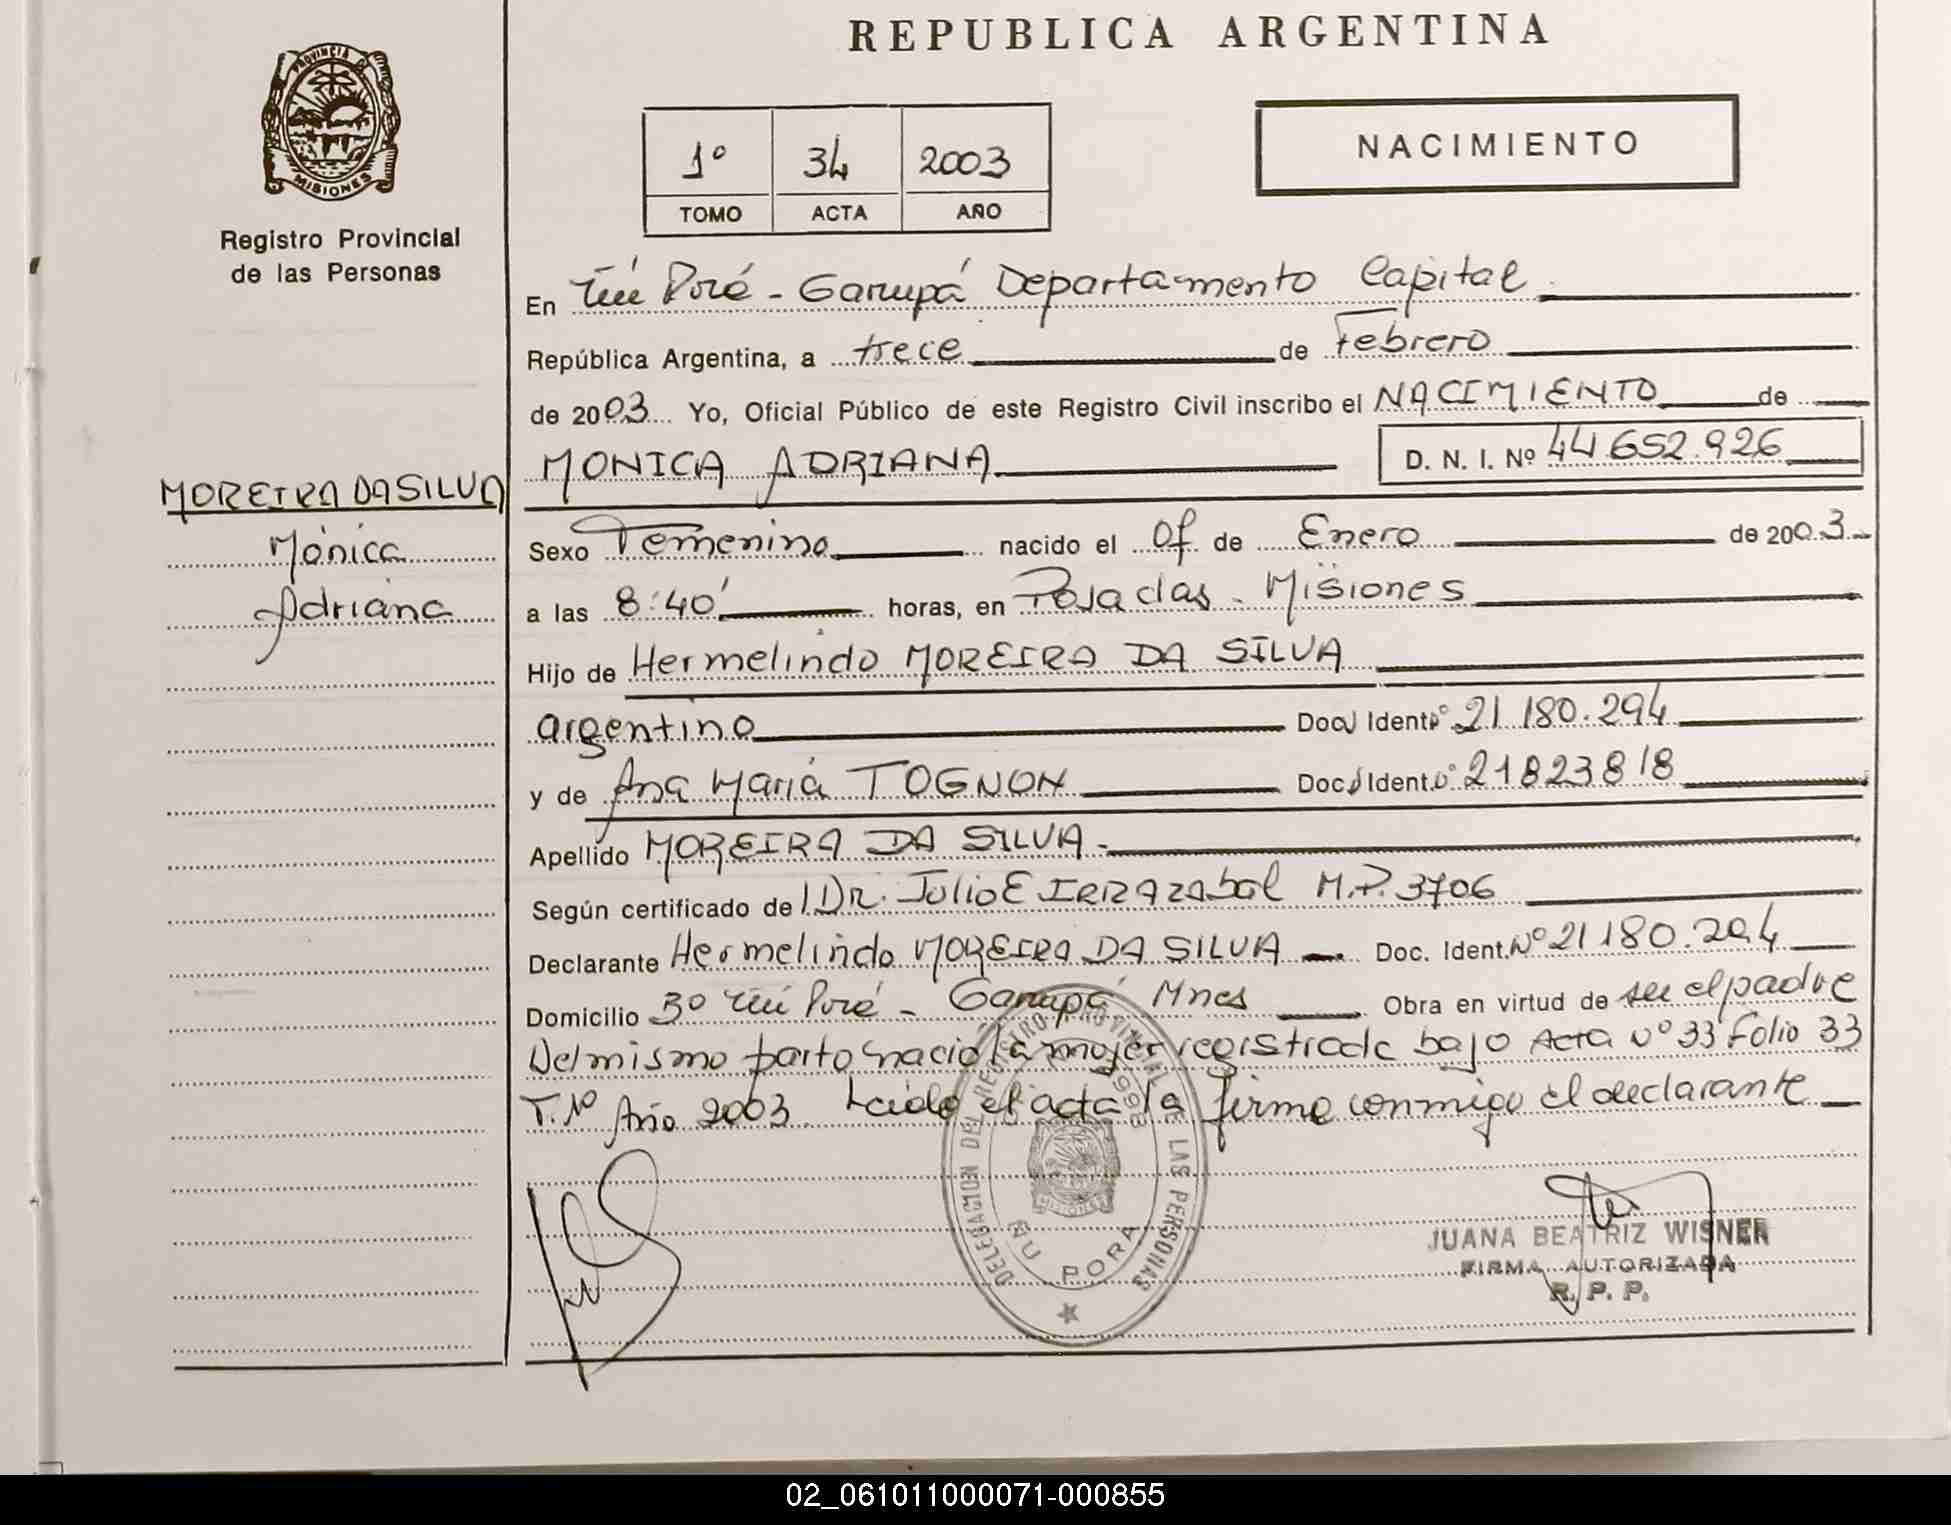 REPUBLICA ARGENTINA
PROVINCIA DE
MISIONES
Registro Provincial
de las Personas
NACIMIENTO
1º 34 2003
TOMO ACTA AÑO
En Ñu Porá - Garupá Departamento Capital
República Argentina, a trece de Febrero
de 2003 Yo, Oficial Público de este Registro Civil inscribo el NACIMIENTO de
MONICA ADRIANA D. N. I. Nº 44.652.926
MOREIRA DA SILVA
Mónica
Adriana
Sexo Femenino nacido el de Enero de 2003
a las 8:40' horas, en Posadas - Misiones
Hijo de Hermelindo MOREIRA DA SILVA
argentino Doc. Ident. Nº 21.180.294
y de Ana María TOGNON Doc. Ident. Nº 21823818
Apellido MOREIRA DA SILVA
Según certificado de Dr. Julio E IRRAZABAL M.P. 3706
Declarante Hermelindo MOREIRA DA SILVA Doc. Ident. Nº 21180.294
Domicilio Bº Ñu Porá - Garupá Mnes Obra en virtud de ser el padre
Del mismo parto nació la mujer registrada bajo Acta Nº 33 Folio 33
T.Nº Año 2003. Leido el acta la firma conmigo el declarante
DELEGACION DEL REGISTRO PROVINCIAL DE LAS PERSONAS
1998
MISIONES
ÑU PORA
JUANA BEATRIZ WISNER
FIRMA AUTORIZADA
R. P. P.
02_061011000071-000855